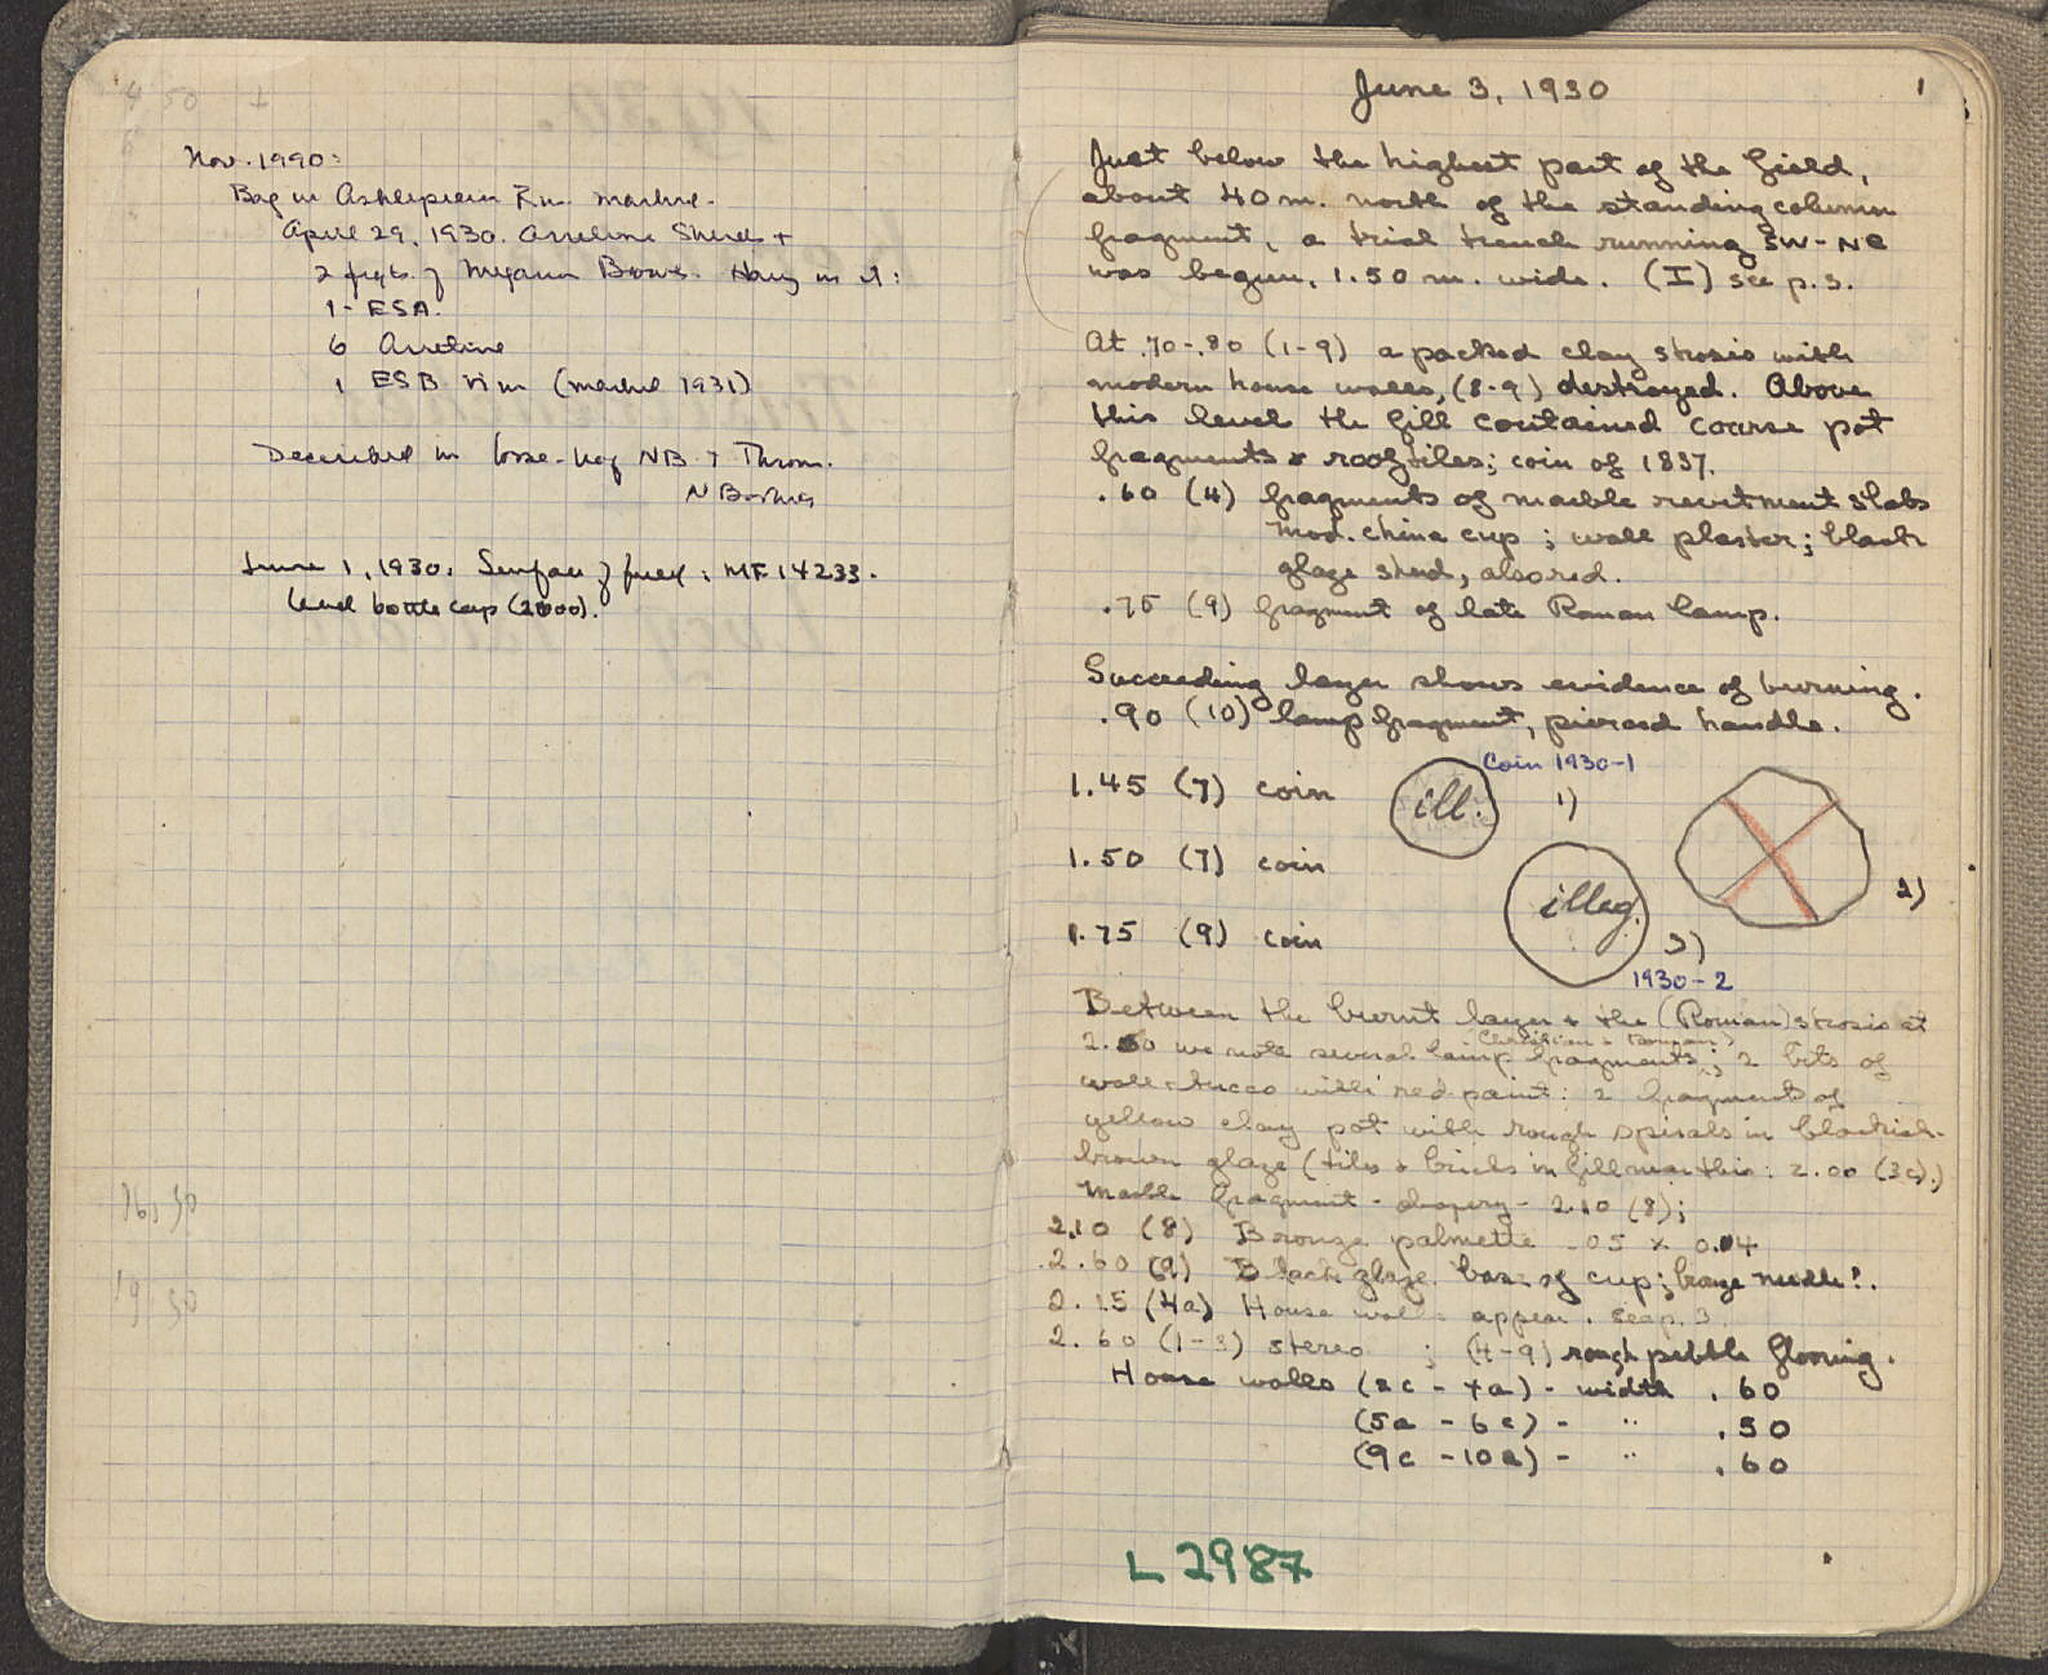 Nov. 1990:
Bag in Asklepieion Rm. marked.
April 29, 1930. Arretine Sherds +
2 frgts. of Megarian Bowls. Have in it:
1- ESA.
6 Arretine
1 ESB rim (marked 1931)
Described in loose-leaf NB of Throm.
June 1, 1930. Surface of field: MF 14233.
lead bottle cap (2000).
June 3, 1930
1
Just below the highest part of the field,
about 40 m. north of the standing column
fragment, a trial trench running SW-NE
was begun, 1.50 m. wide. (I) see p. 3.
At .70-.80 (1-9) a packed clay strosis with
modern house walls, (8-9) destroyed. Above
this level the fill contained coarse pot
fragments & roof tiles; coin of 1837.
.60 (4) fragments of marble revetment slabs
Mod. china cup; wall plaster; black
glaze sherd, also red.
.75 (9) fragment of late Roman lamp.
Succeeding layer shows evidence of burning.
.90 (10) lamp fragment, pierced handle.
Coin 1930-1
1.45 (7) coin ill. 1)
1.50 (7) coin 2)
illeg.
1.75 (9) coin 3)
1930-2
Between the burnt layer & the (Roman) strosis at
(Christian & Roman)
2.60 we note several lamp fragments; 2 bits of
wall stucco with red paint: 2 fragments of
yellow clay pot with rough spirals in blackish-
brown glaze (tiles & bricks in fill near this: 2.00 (3c).)
Marble fragment - drapery - 2.10 (8);
2.10 (8) Bronze palmette .05 x 0.04
2.60 (9) Black glaze base of cup; bronze needle?.
2.15 (4a) House walls appear. see p. 3.
2.60 (1-3) stereo ; (4-9) rough pebble flooring.
House walls (2c - 4a) - width .60
(5a - 6c) - " .50
(9c - 10a) - " .60
L 2987